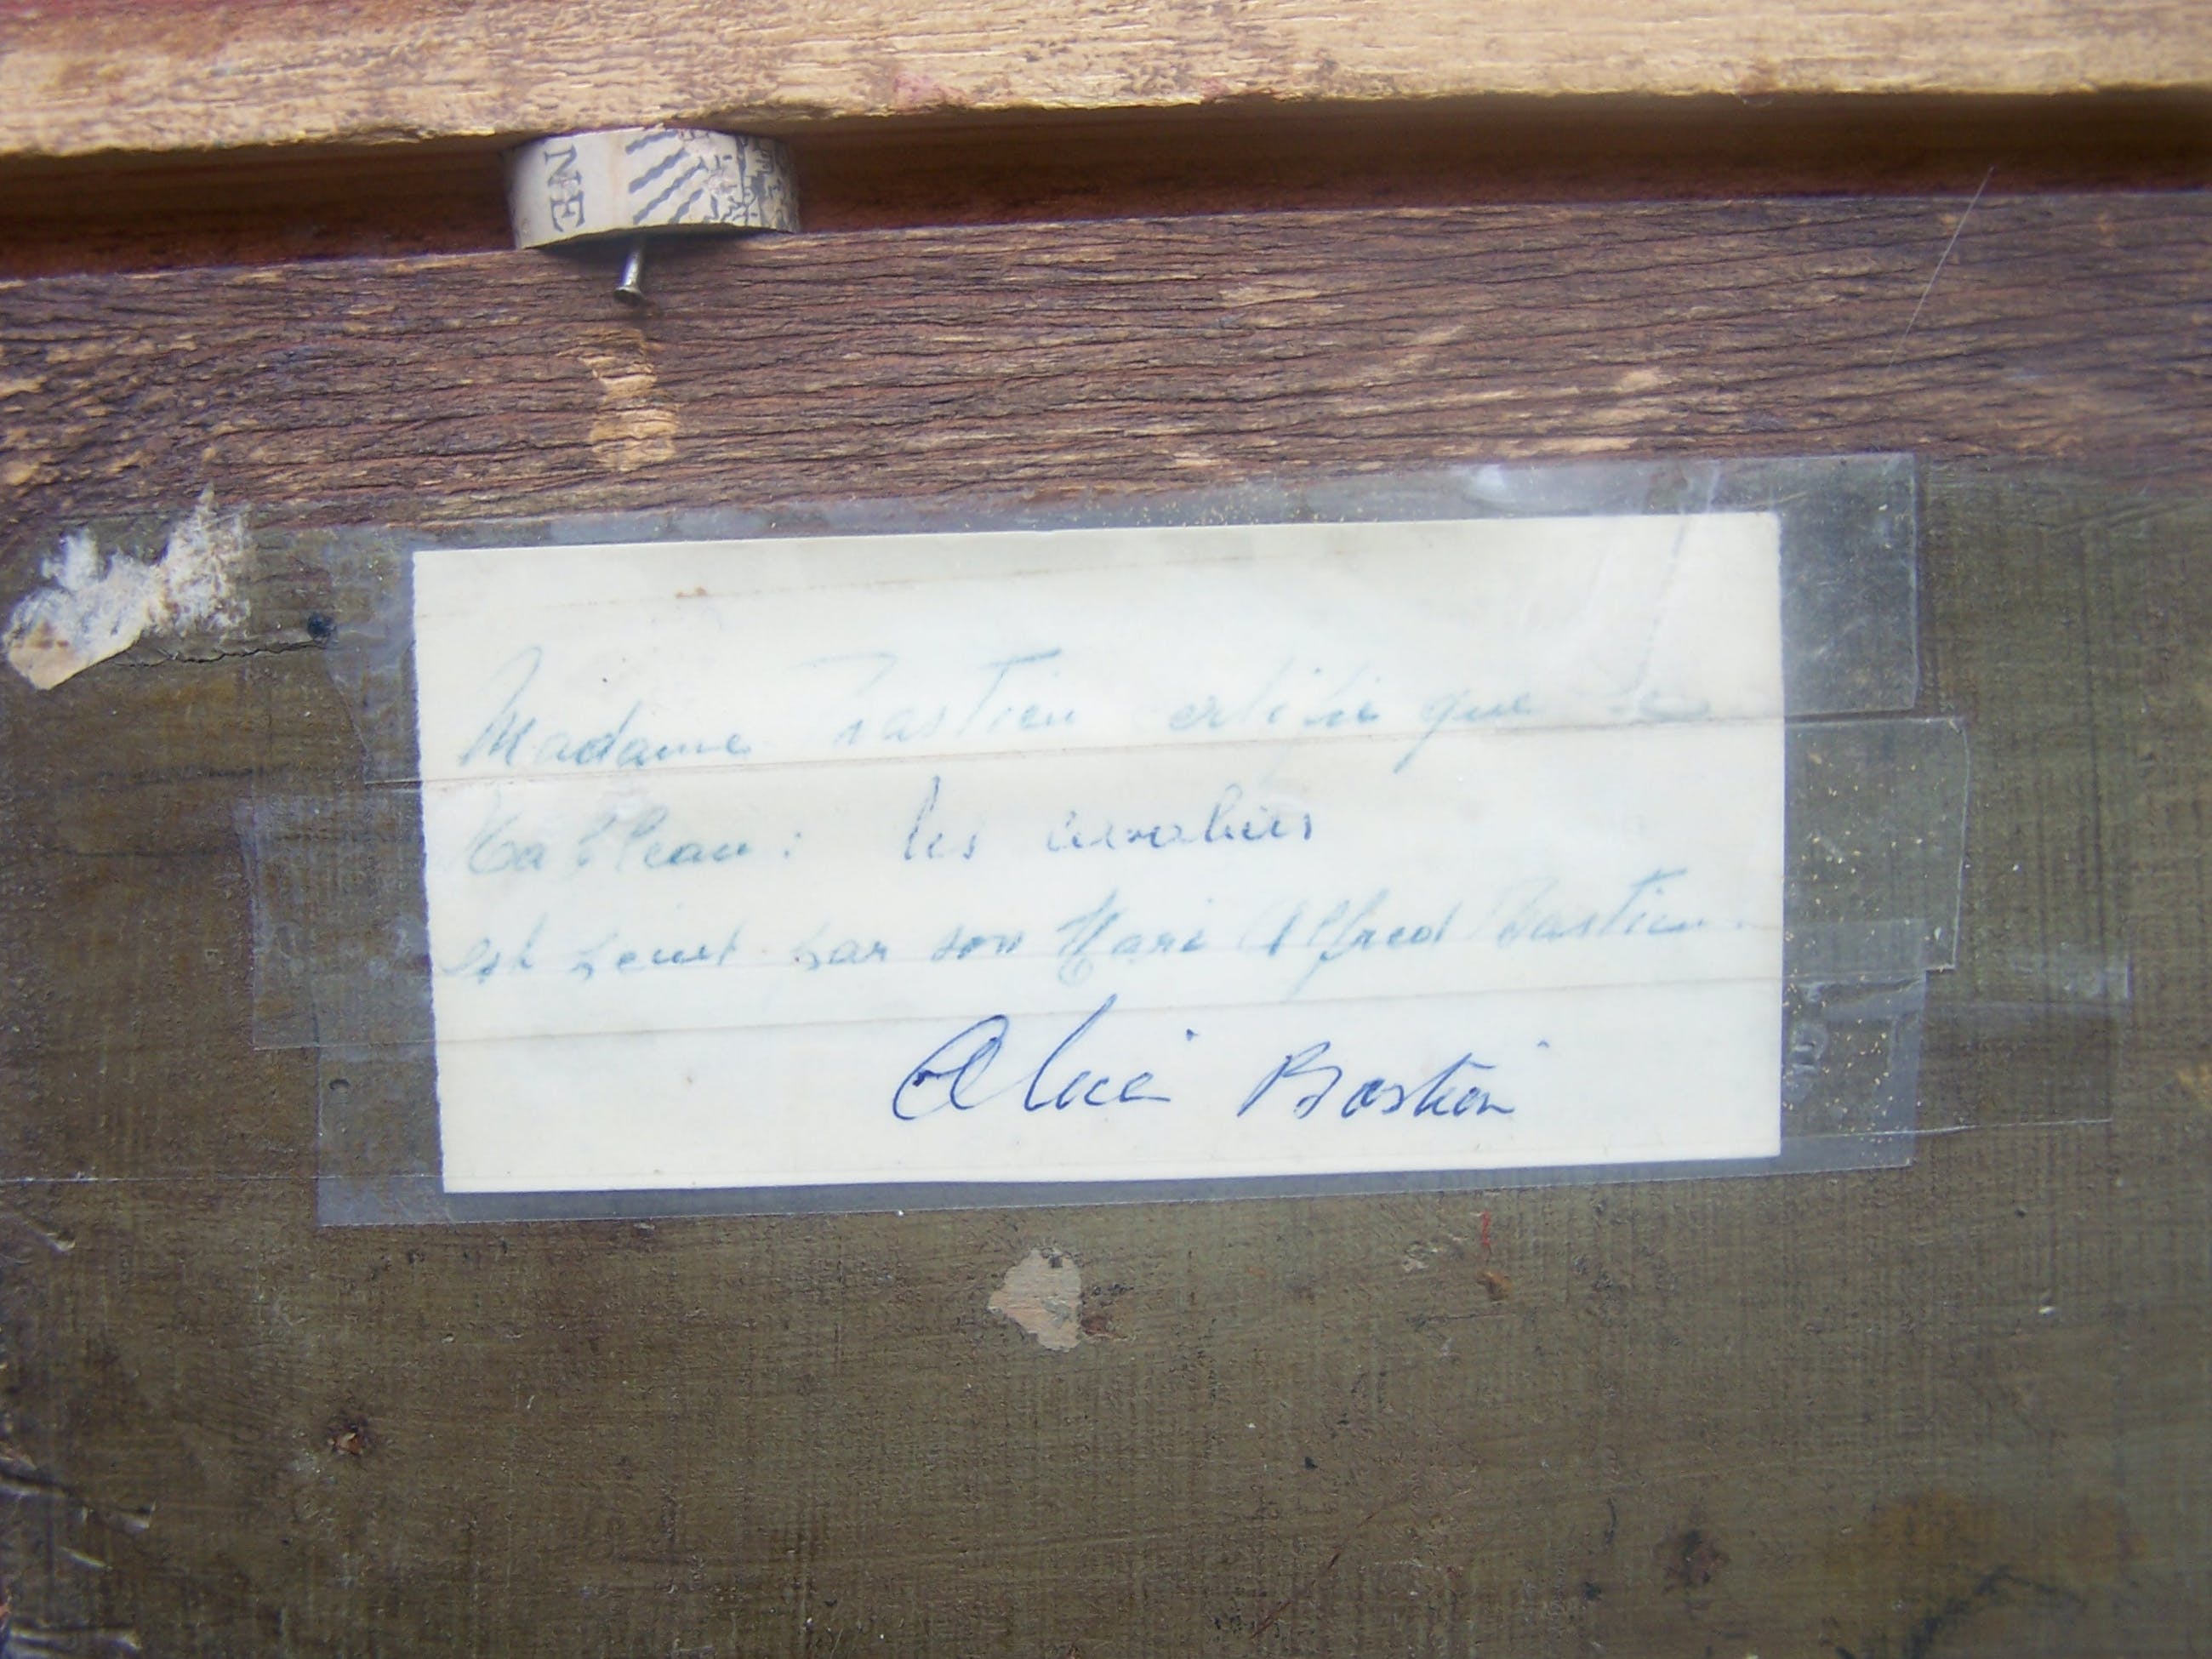 NE
Madame Bastien certifie que le
Tableau: les cavaliers
est peint par son Mari Alfred Bastien.
Alice Bastien